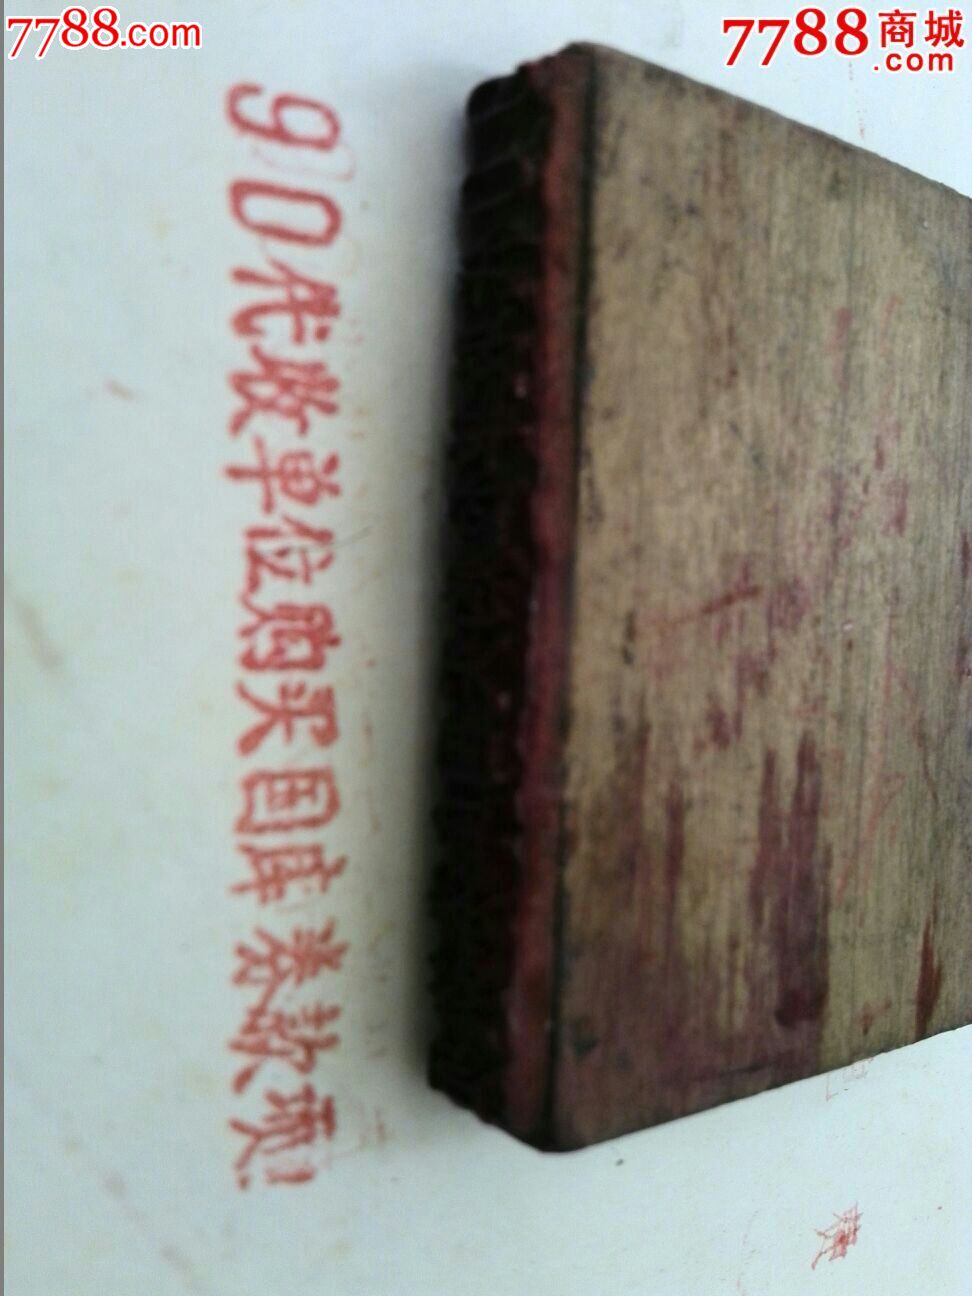 7788.com
7788商城
.com
90代收单位购买国库券款项